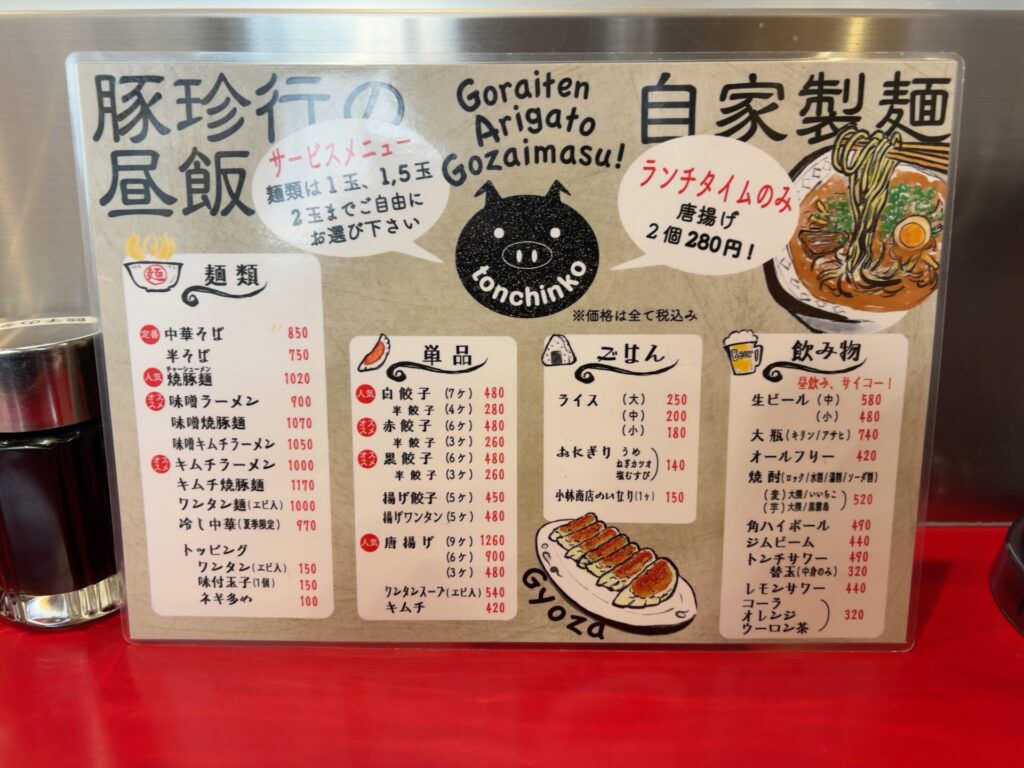 豚珍行の
昼飯
サービスメニュー
麺類は1玉、1,5玉
2玉までご自由に
お選び下さい
Goraiten
Arigato
Gozaimasu!
tonchinko
自家製麺
ランチタイムのみ
唐揚げ
2個280円!
※価格は全て税込み
麺
麺類
定番 中華そば 850
半そば 750
人気 焼豚麺 1020
チャーシューメン
オススメ 味噌ラーメン 900
味噌焼豚麺 1070
味噌キムチラーメン 1050
オススメ キムチラーメン 1000
キムチ焼豚麺 1170
ワンタン麺(エビ入) 1000
冷し中華(夏季限定) 970
トッピング
ワンタン(エビ入) 150
味付玉子(1個) 150
ネギ多め 100
単品
人気 白餃子 (7ケ) 480
半餃子 (4ケ) 280
オススメ 赤餃子 (6ケ) 480
半餃子 (3ケ) 260
オススメ 黒餃子 (6ケ) 480
半餃子 (3ケ) 260
揚げ餃子 (5ケ) 450
揚げワンタン (5ケ) 480
人気 唐揚げ (9ケ) 1260
(6ケ) 900
(3ケ) 480
ワンタンスープ(エビ入) 540
キムチ 420
ごはん
ライス (大) 250
(中) 200
(小) 180
おにぎり うめ
ねぎカツオ 140
塩むすび
小林商店のいなり(1ケ) 150
Gyoza
Beer
飲み物
昼飲み、サイコー!
生ビール (中) 580
(小) 480
大瓶(キリン/アサヒ) 740
オールフリー 420
焼酎(ロック/水割/湯割/ソーダ割)
(麦)大隅/いいちこ
(芋)大隅/黒霧島 520
角ハイボール 490
ジムビーム 440
トンチサワー 490
替玉(中身のみ) 320
レモンサワー 440
コーラ
オレンジ 320
ウーロン茶